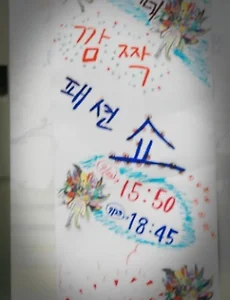 깜짝
패션
쇼
15:50
18:45